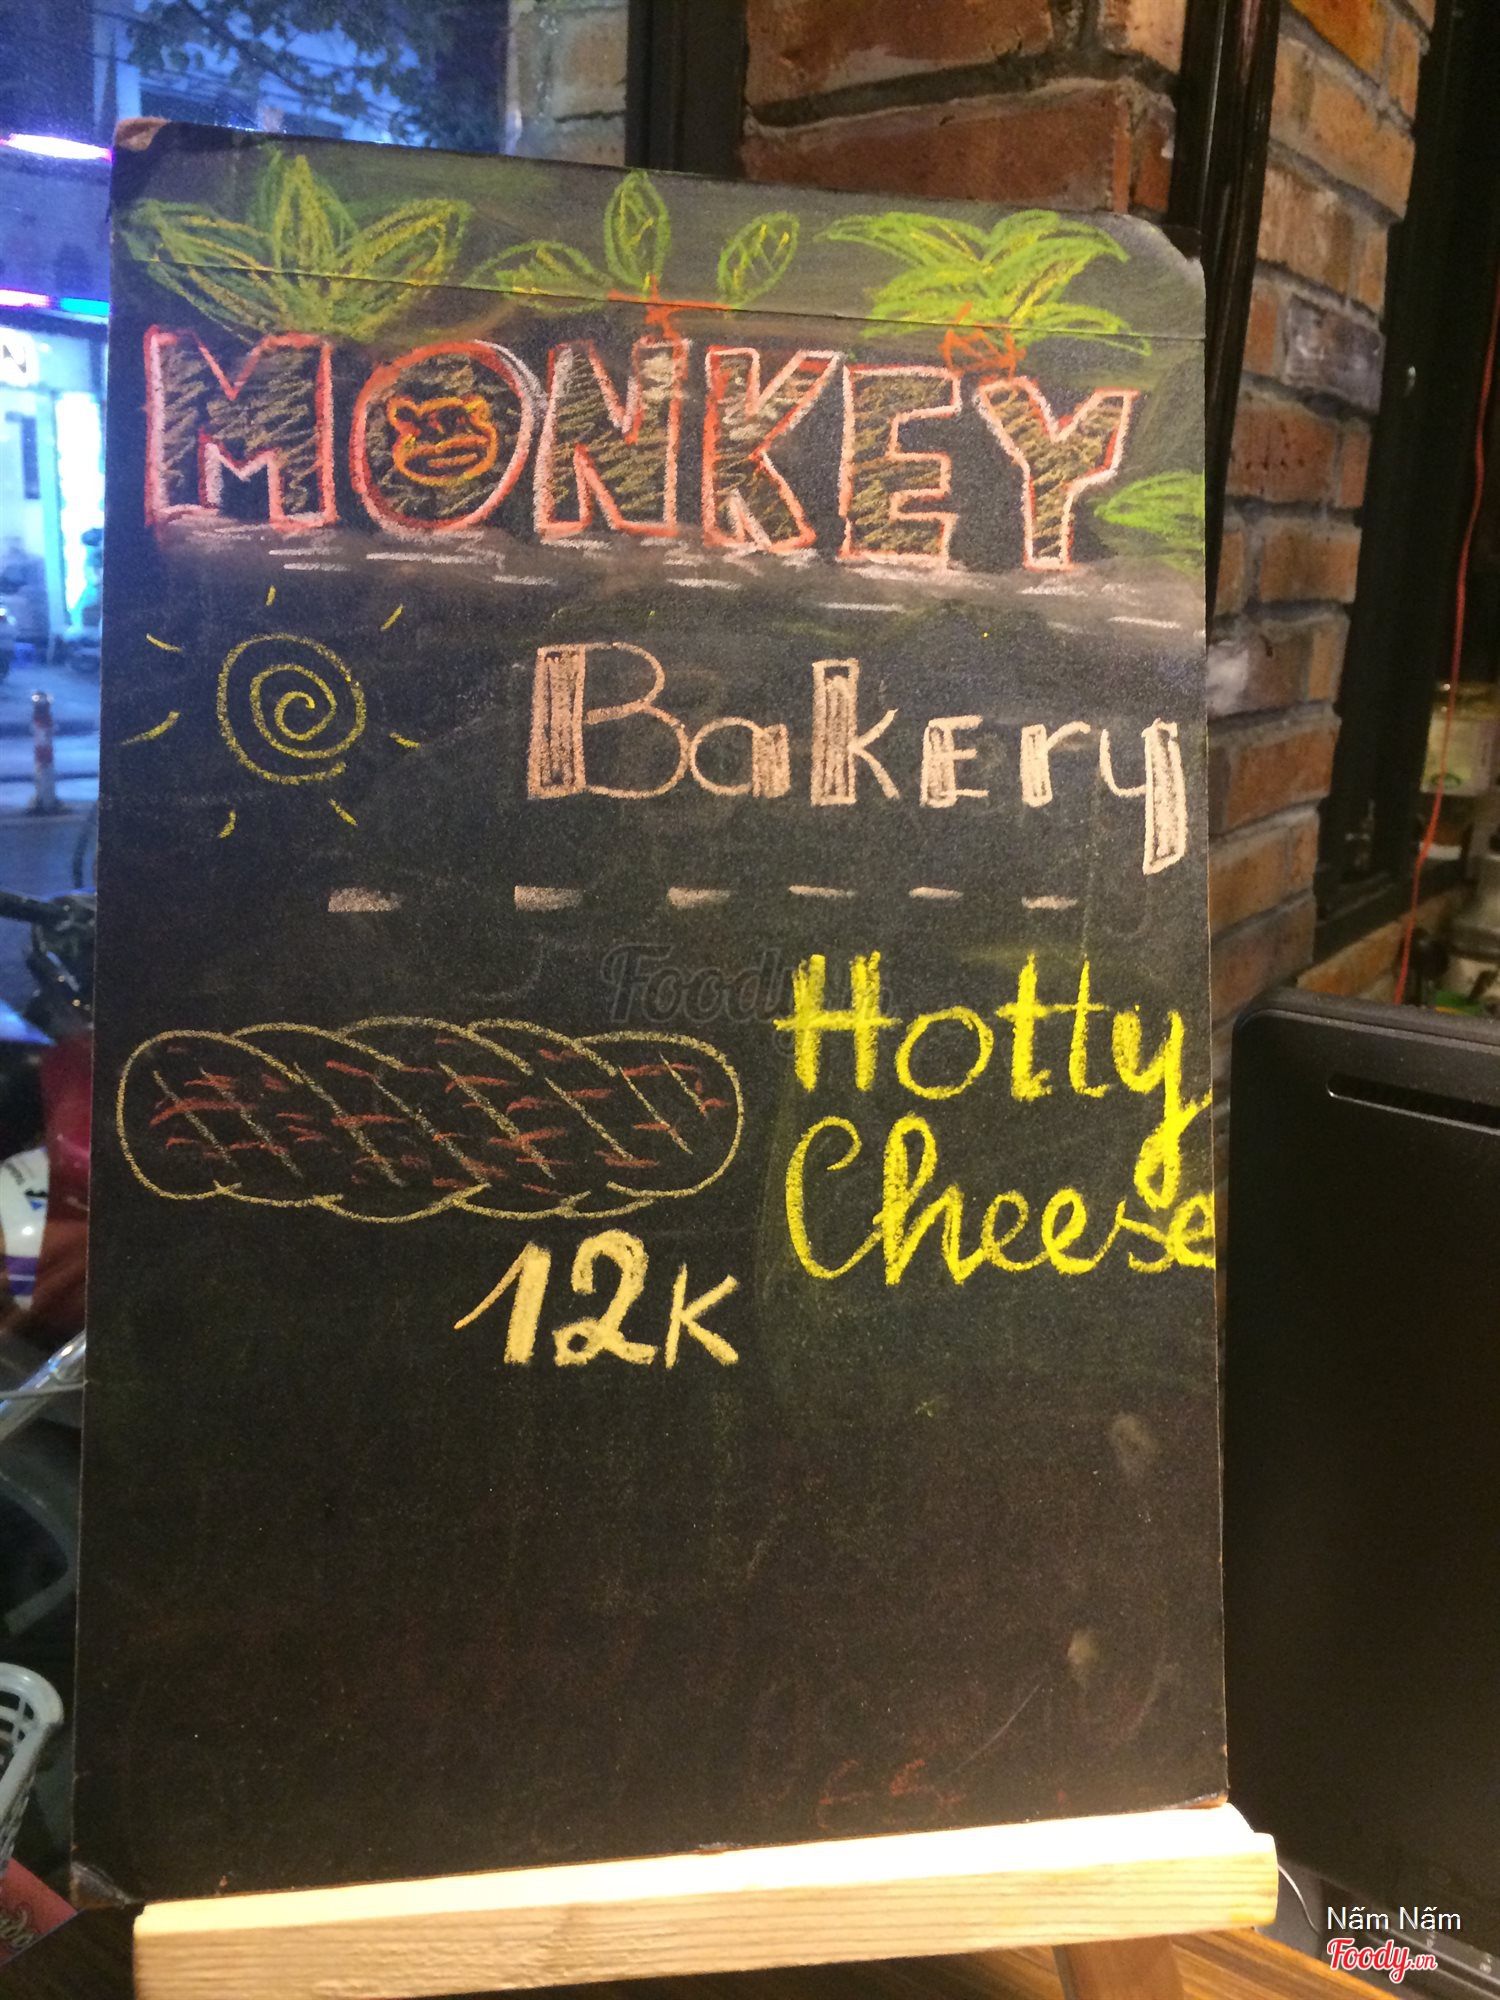 MONKEY
Bakery
Hotty
Cheese
12K
Foody.vn
Nấm Nấm
Foody.vn